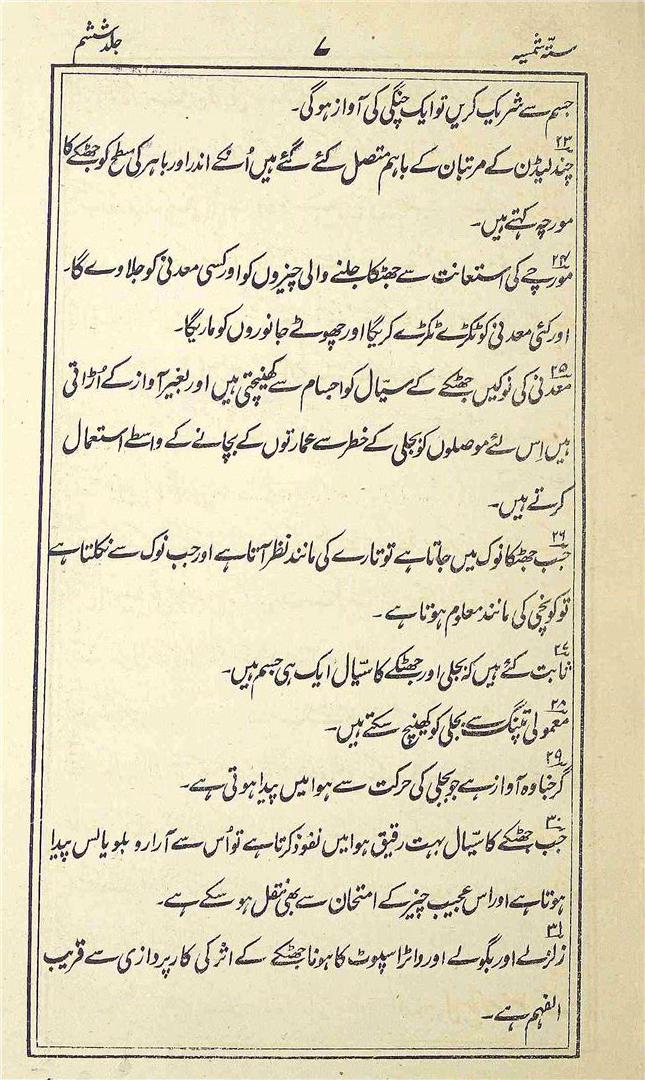 ستۂ شمسیہ
۷
جلد ششم
جسم سے شریک کریں تو ایک چنگی کی آواز ہوگی۔
۲۳ چند لیڈن کے مرتبان کے باہم متصل کئے گئے ہیں اُنکے اندر اور باہر کی سطح کو جھٹکے کا
مورچہ کہتے ہیں۔
۲۴ مورچے کی استعانت سے جھٹکا جلنے والی چیزوں کو اور کسی معدنی کو جلاوے گا۔
اور کئی معدنی کو ٹکڑے ٹکڑے کریگا اور چھوٹے جانوروں کو ماریگا۔
۲۵ معدنی کی نوکیں جھٹکے کے سیّال کو اجسام سے کھینچتی ہیں اور بغیر آواز کے اُڑاتی
ہیں اِس لئے موصلوں کو بجلی کے خطر سے عمارتوں کے بچانے کے واسطے استعمال
کرتے ہیں۔
۲۶ جب جھٹکا نوک میں جاتا ہے تو تارے کی مانند نظر آتا ہے اور جب نوک سے نکلتا ہے
تو کونچی کی مانند معلوم ہوتا ہے۔
۲۷ ثابت کئے ہیں کہ بجلی اور جھٹکے کا سیّال ایک ہی جسم ہیں۔
۲۸ معمولی تپنگ سے بجلی کو کھینچ سکتے ہیں۔
۲۹ گرجنا وہ آواز ہے جو بجلی کی حرکت سے ہوا میں پیدا ہوتی ہے۔
۳۰ جب جھٹکے کا سیّال بہت رقیق ہوا میں نفوذ کرتا ہے تو اُس سے آرارو بلویالس پیدا
ہوتا ہے اور اس عجیب چیز کے امتحان سے بھی نقل ہو سکے ہے۔
۳۱ زلزلے اور بگولے اور واٹر اسپوٹ کا ہونا جھٹکے کے اثر کی کارپردازی سے قریب
الفہم ہے۔